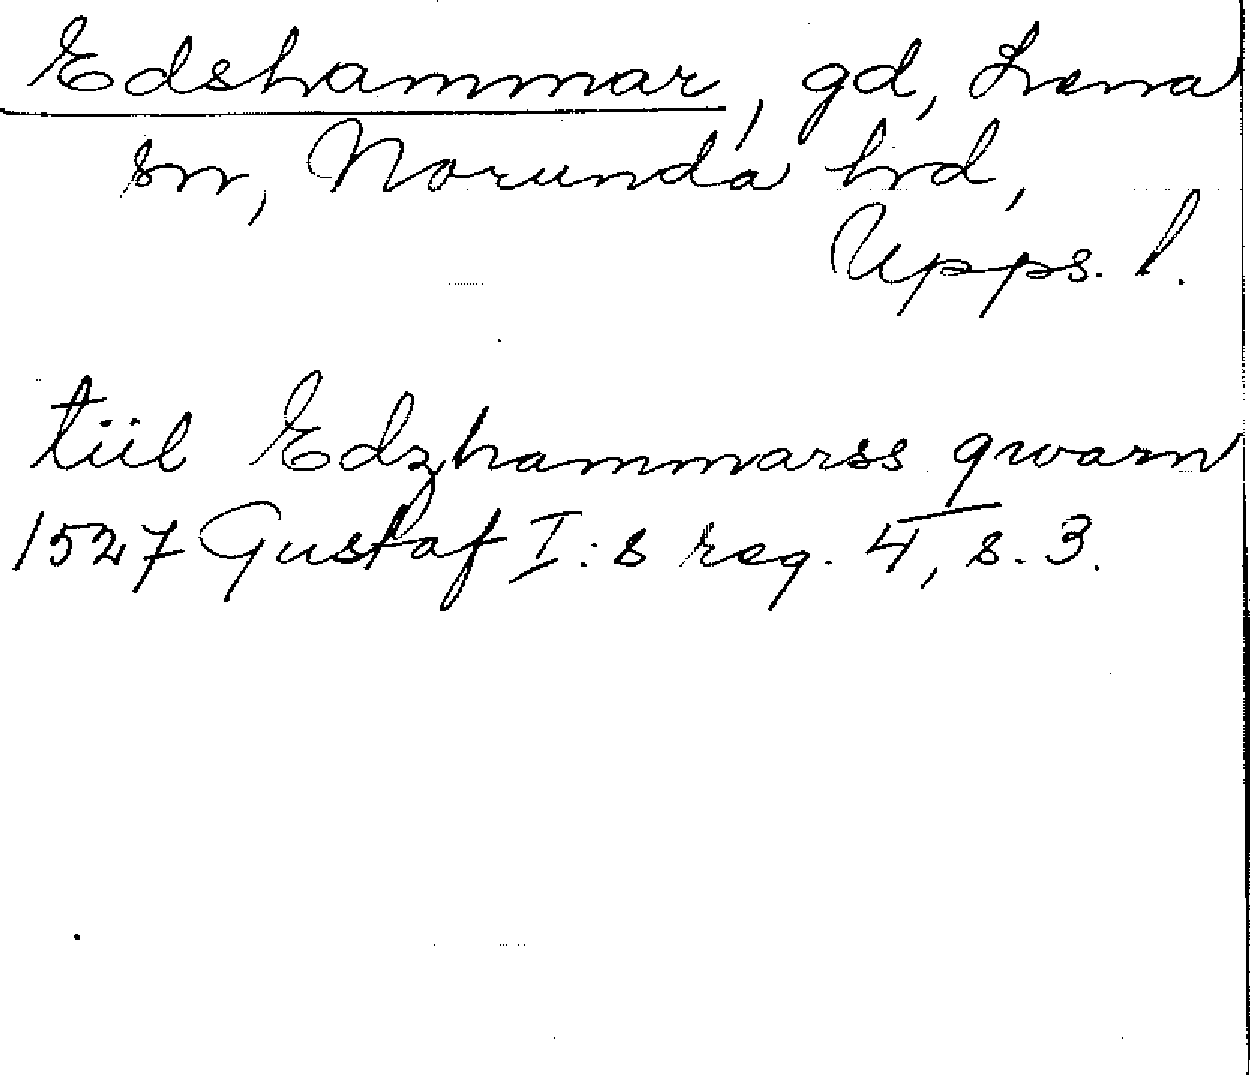 Edshammar, gd, Lena
sn, Norunda hd,
Upps. l.
tiil Edzhammarss qwarn
1527 Gustaf I:s reg. 4, s. 3.